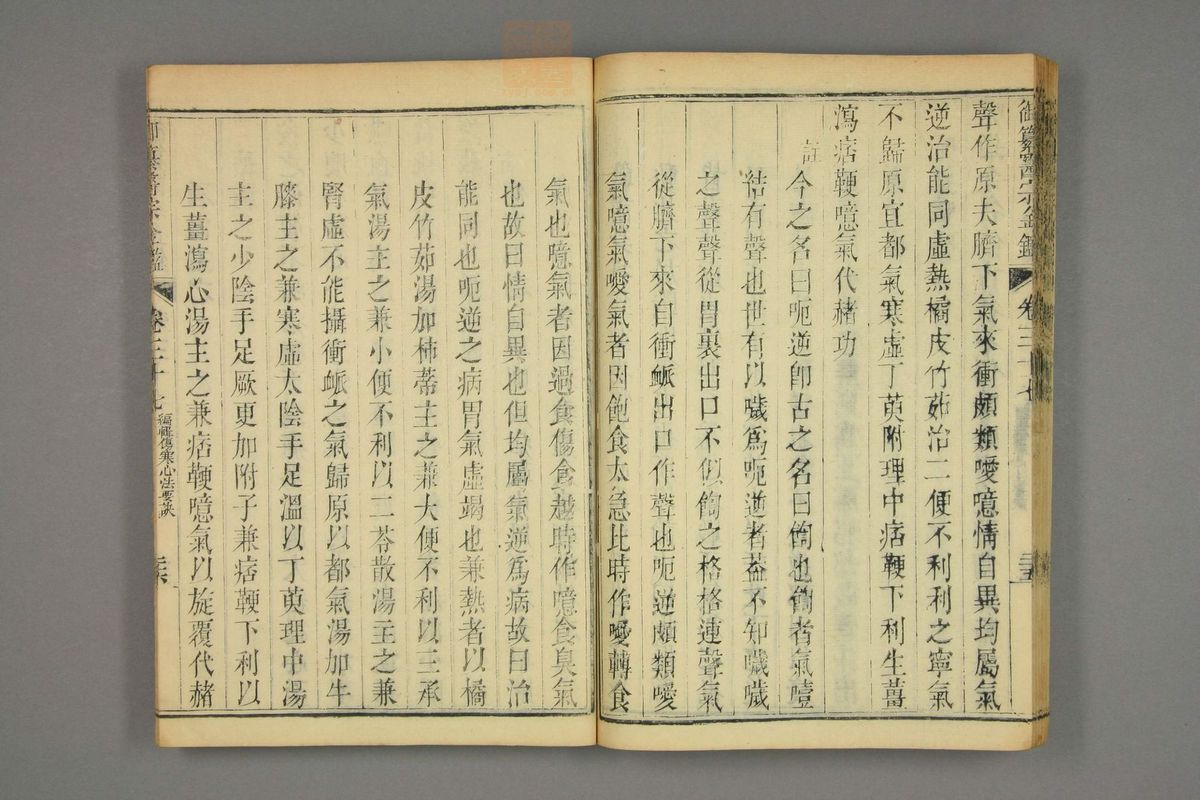 御纂醫宗金鑑 卷三十七 三五
聲作原大臍下氣來衝頗類噯噫情自異均屬氣
逆治能同虛熱橘皮竹茹治二便不利利之寧氣
不歸原宜都氣寒虛丁萸附理中痞鞕下利生薑
瀉痞鞕噫氣代赭功
註
今之名曰呃逆卽古之名曰㗂也㗂者氣噎
結有聲也世有以噦爲呃逆者葢不知噦噦
之聲聲從胃裏出口不似㗂之格格連聲氣
從臍下來自衝䘑出口作聲也呃逆頗類噯
氣噫氣噯氣者因飽食太急比時作噯轉食
氣也噫氣者因過食傷食越時作噫食臭氣
也故曰情自異也但均屬氣逆爲病故曰治
能同也呃逆之病胃氣虛竭也兼熱者以橘
皮竹茹湯加柿蒂主之兼大便不利以三承
氣湯主之兼小便不利以二苓散湯主之兼
腎虛不能攝衝䘑之氣歸原以都氣湯加牛
膝主之兼寒虛太陰手足溫以丁萸理中湯
主之少陰手足厥更加附子兼痞鞕下利以
生薑瀉心湯主之兼痞鞕噫氣以旋覆代赭
御纂醫宗金鑑 卷三十七 編輯傷寒心法要訣 三六